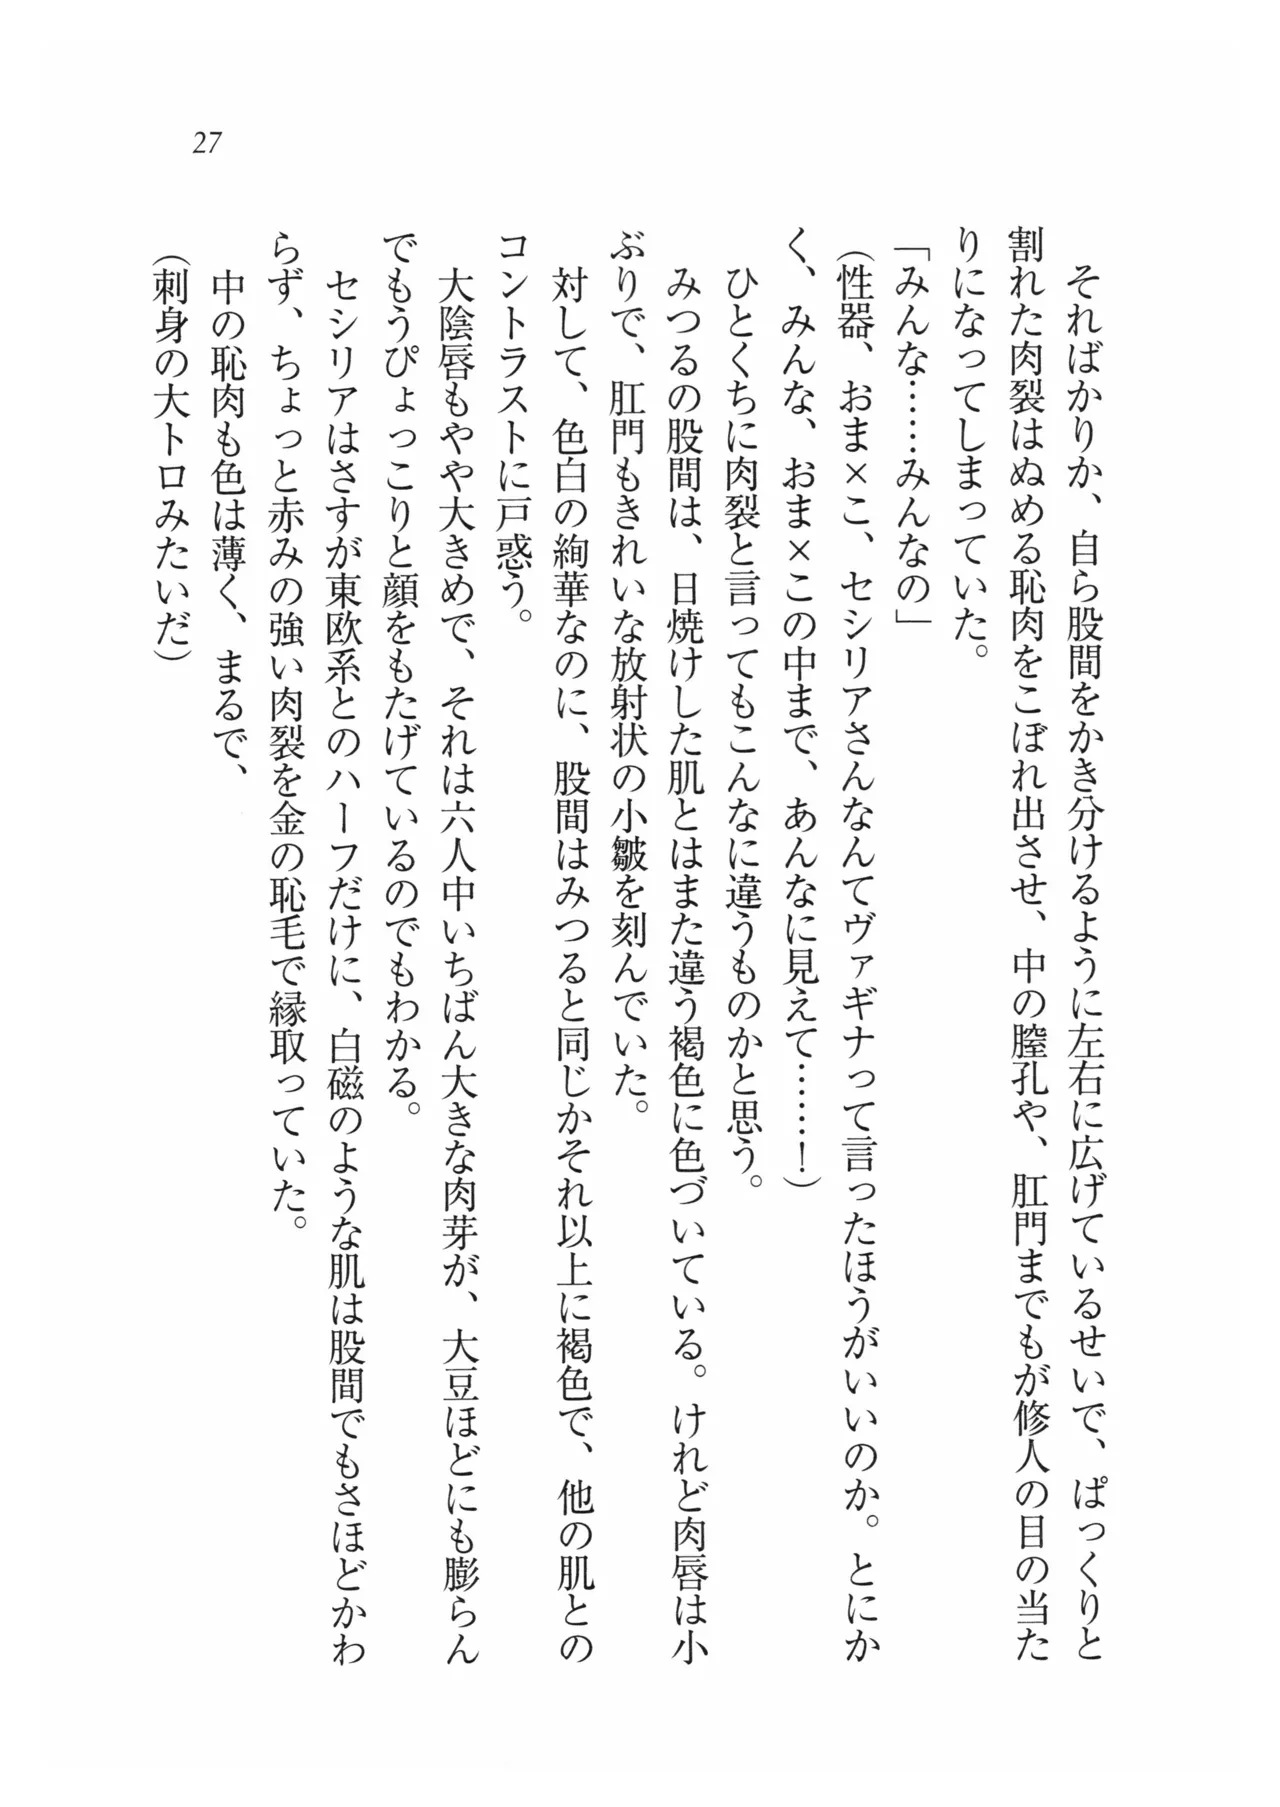 27
そればかりか、自ら股間をかき分けるように左右に広げているせいで、ぱっくりと
割れた肉裂はぬめる恥肉をこぼれ出させ、中の膣孔や、肛門までもが修人の目の当た
りになってしまっていた。
「みんな……みんなの」
（性器、おま×こ、セシリアさんなんてヴァギナって言ったほうがいいのか。とにか
く、みんな、おま×この中まで、あんなに見えて……！）
ひとくちに肉裂と言ってもこんなに違うものかと思う。
みつるの股間は、日焼けした肌とはまた違う褐色に色づいている。けれど肉唇は小
ぶりで、肛門もきれいな放射状の小皺を刻んでいた。
対して、色白の絢華なのに、股間はみつると同じかそれ以上に褐色で、他の肌との
コントラストに戸惑う。
大陰唇もやや大きめで、それは六人中いちばん大きな肉芽が、大豆ほどにも膨らん
でもうぴょっこりと顔をもたげているのでもわかる。
セシリアはさすが東欧系とのハーフだけに、白磁のような肌は股間でもさほどかわ
らず、ちょっと赤みの強い肉裂を金の恥毛で縁取っていた。
中の恥肉も色は薄く、まるで、
（刺身の大トロみたいだ）